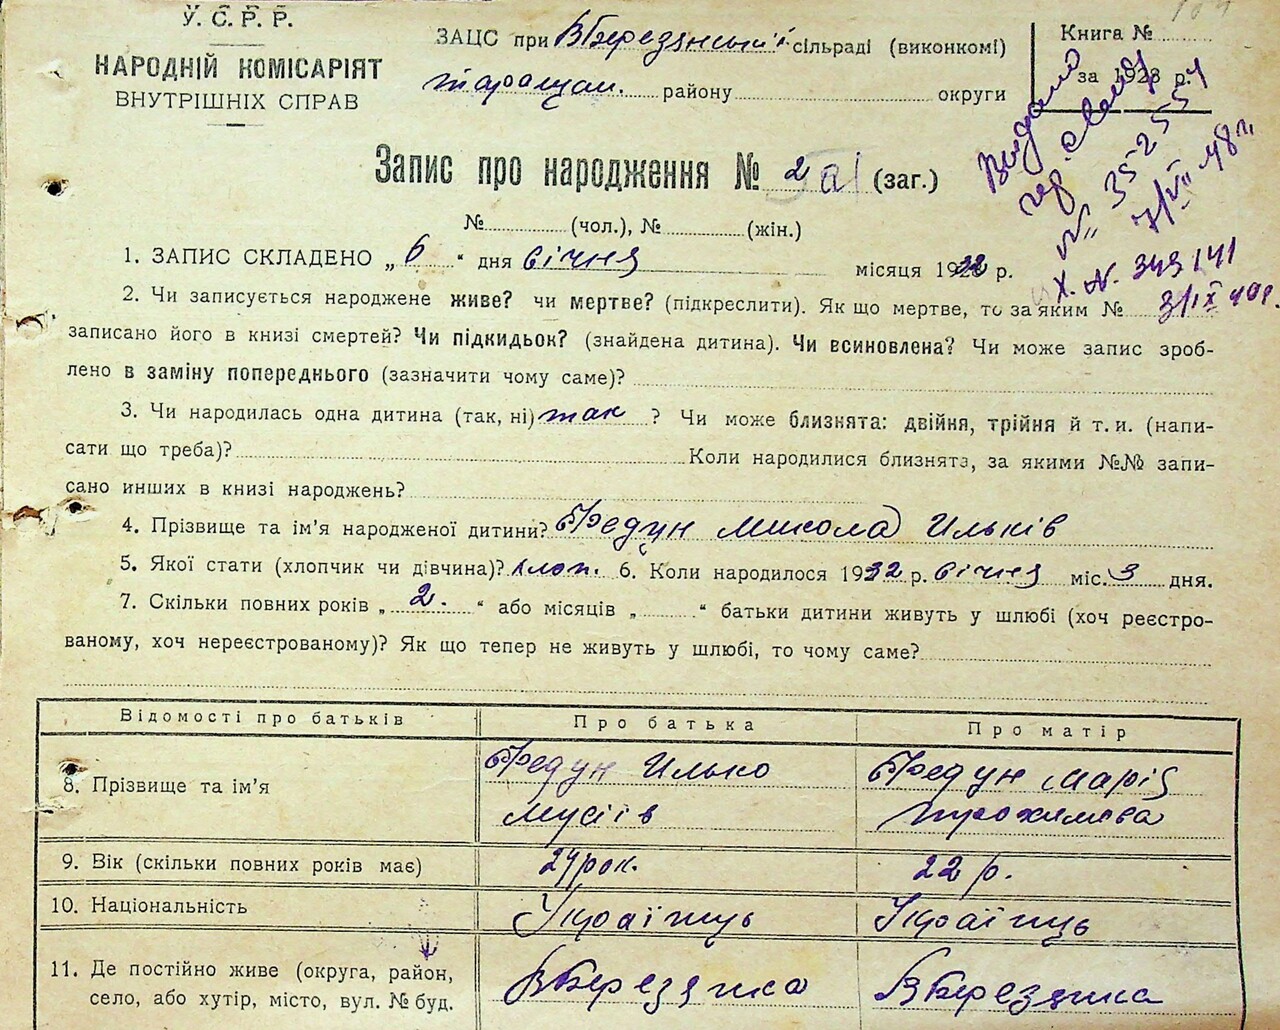 У. С. Р. Р.
НАРОДНІЙ КОМІСАРІЯТ
ВНУТРІШНІХ СПРАВ
ЗАЦС при ВБерезянській сільраді (виконкомі)
Таращан. району округи
Книга №
за 1928 р.
Видано
№ 352554
7/VII 48 г.
Х. N. 349141
3/IX 49г.
Запис про народження № 2 а (заг.)
№ (чол.), № (жін.)
1. ЗАПИС СКЛАДЕНО „ 6 “ дня січня місяця 1932 р.
2. Чи записується народжене живе? чи мертве? (підкреслити). Як що мертве, то за яким №
записано його в книзі смертей? Чи підкидьок? (знайдена дитина). Чи всиновлена? Чи може запис зроб-
лено в заміну попереднього (зазначити чому саме)?
3. Чи народилась одна дитина (так, ні) так ? Чи може близнята: двійня, трійня й т. и. (напи-
сати що треба)? Коли народилися близнята, за якими №№ запи-
сано инших в книзі народжень?
4. Прізвище та ім'я народженої дитини? Федун Микола Ильків
5. Якої стати (хлопчик чи дівчина)? хлоп. 6. Коли народилося 1932 р. січня міс. 3 дня.
7. Скільки повних років „ 2. “ або місяців „ “ батьки дитини живуть у шлюбі (хоч реєстро-
ваному, хоч нереєстрованому)? Як що тепер не живуть у шлюбі, то чому саме?
Відомості про батьків Про батька Про матір
8. Прізвище та ім'я Федун Илько Федун Марія
Мусіїв Трохимова
9. Вік (скільки повних років має) 24 рок. 22 р.
10. Національність Українць Українць
11. Де постійно живе (округа, район, ВБерезянка ВБерезянка
село, або хутір, місто, вул. № буд.